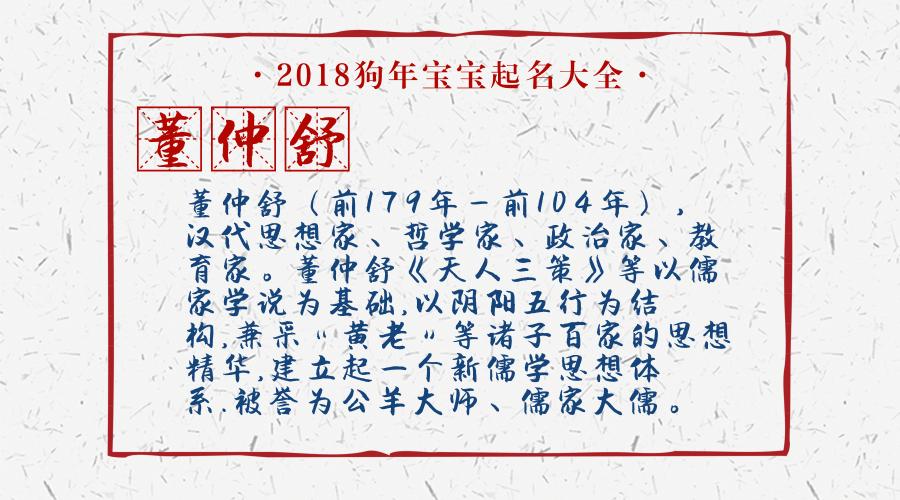 ·2018狗年宝宝起名大全·
董仲舒
董仲舒（前179年－前104年），
汉代思想家、哲学家、政治家、教
育家。董仲舒《天人三策》等以儒
家学说为基础,以阴阳五行为结
构,兼采"黄老"等诸子百家的思想
精华,建立起一个新儒学思想体
系.被誉为公羊大师、儒家大儒。